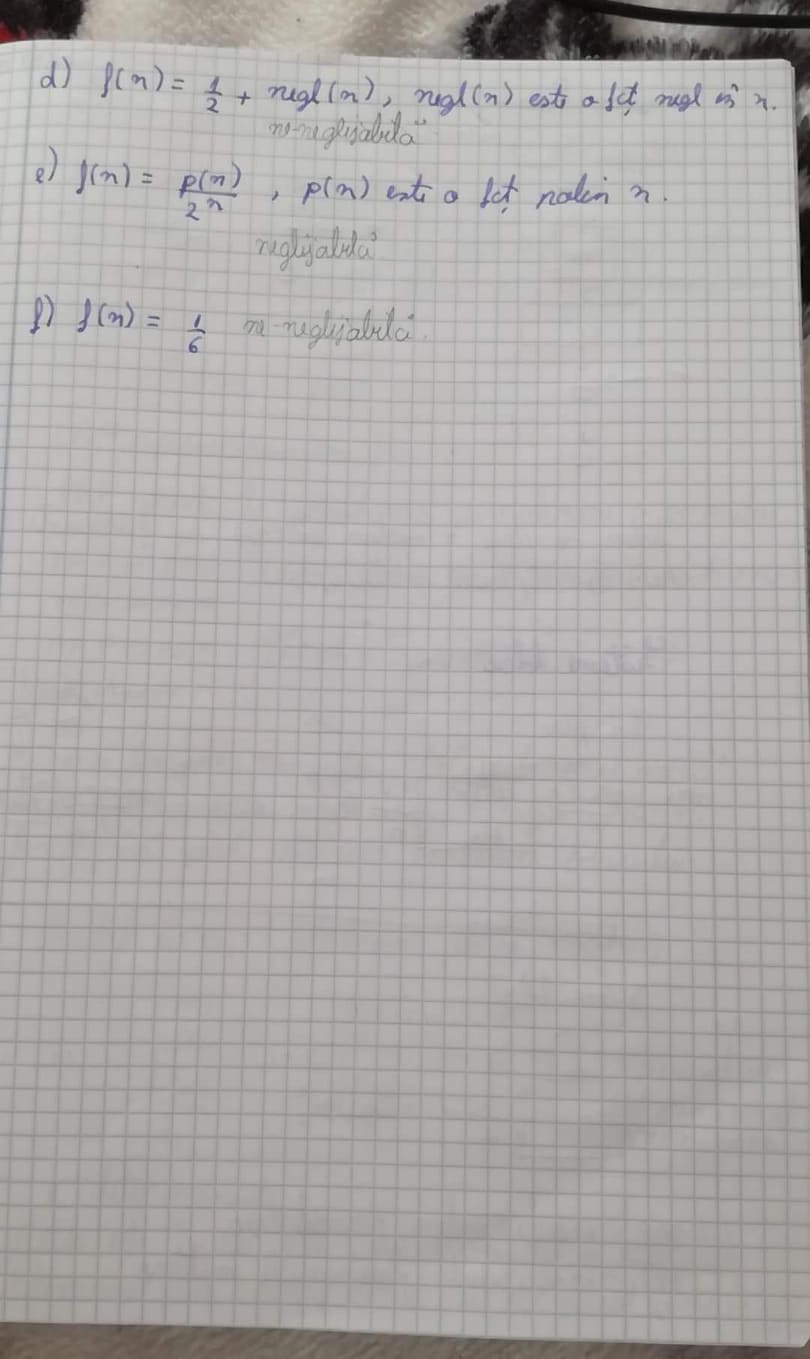 d) f(n) = 1/2 + negl(n), negl(n) este o fct negl în n.
ne-neglijabilă
e) f(n) = p(n)/2^n , p(n) este o fcț polin n.
neglijabilă
f) f(n) = 1/6 ne-neglijabilă.